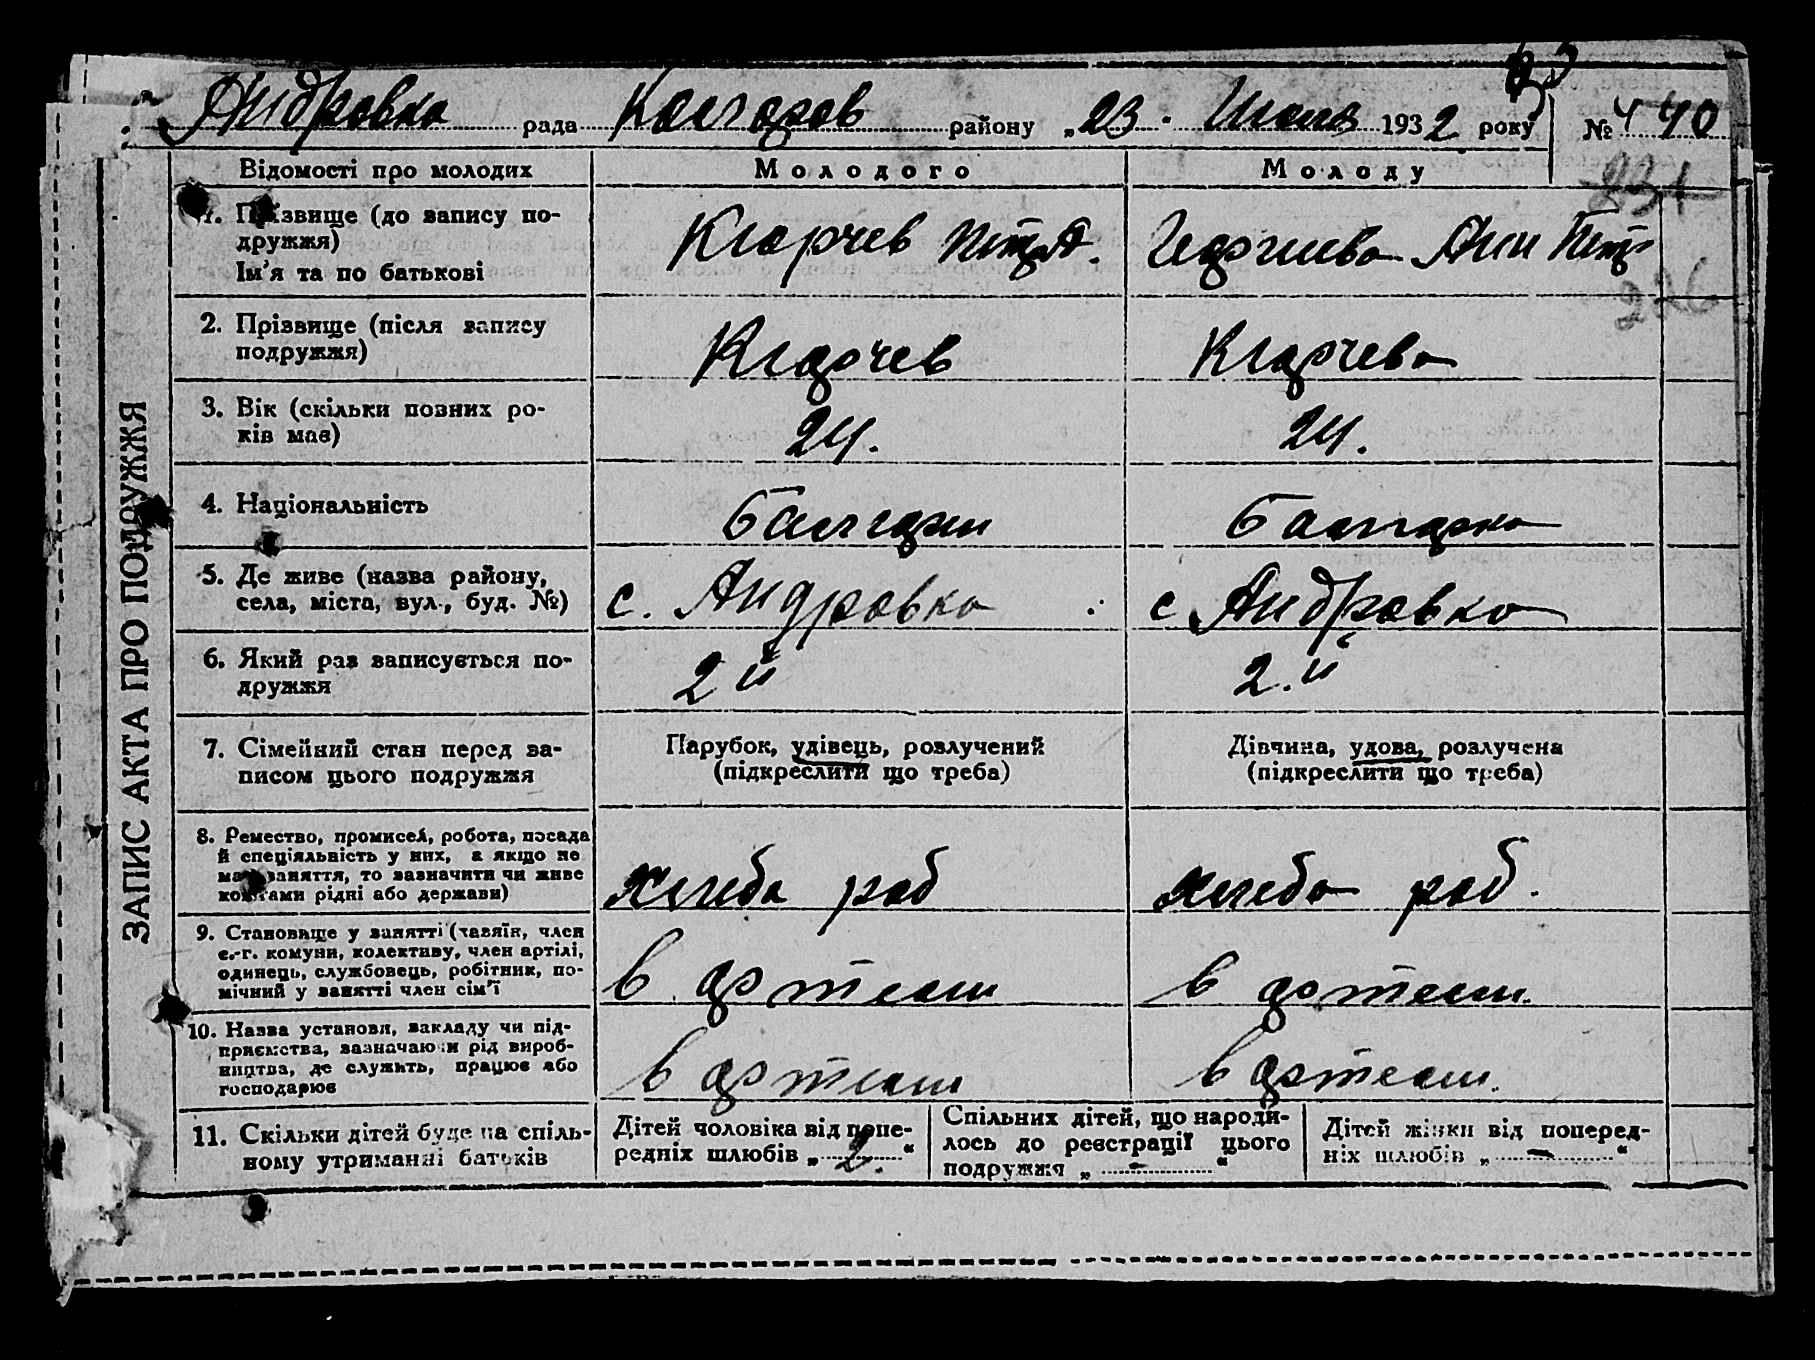 Андровка рада Колларов району „23. Июля 1932 року № 40
Відомості про молодих
Молодого
Молоду
1. Прізвище (до запису по-
дружжя)
Ім'я та по батькові
Кларчев Петр
Георгиева Анн Петр
2. Прізвище (після запису
подружжя)
Кларчев
Кларчева
3. Вік (скільки повних ро-
ків має)
24.
24.
4. Національність
Балгарин
Балгарка
5. Де живе (назва району,
села, міста, вул., буд. №)
с. Андровка
с. Андровка
6. Який раз записується по-
дружжя
2й
2.й
7. Сімейний стан перед за-
писом цього подружжя
Парубок, удівець, розлучений
(підкреслити що треба)
Дівчина, удова, розлучена
(підкреслити що треба)
8. Ремество, промисел, робота, посада
й спеціяльність у них, а якщо не
має заняття, то зазначити чи живе
коштами рідні або держави)
хлеба роб
хлеба роб.
9. Становище у занятті (хазяїн, член
с.-г. комуни, колективу, член артілі,
одинець, службовець, робітник, по-
мічний у занятті член сім'ї
в артели
в артели.
10. Назва установи, закладу чи під-
приємства, зазначаючи рід вироб-
ництва, де служить, працює або
господарює
в артели
в артели.
11. Скільки дітей буде на спіль-
ному утриманні батьків
Дітей чоловіка від попе-
редніх шлюбів „ 2. “
Спільних дітей, що народи-
лось до реєстрації цього
подружжя „ - “
Дітей жінки від поперед-
ніх шлюбів „ - “
ЗАПИС АКТА ПРО ПОДРУЖЖЯ